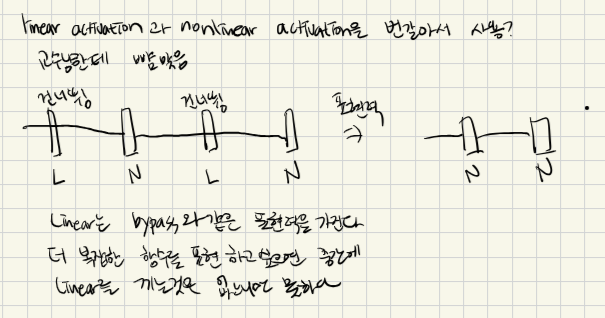 linear activation 과 nonlinear activation을 번갈아서 사용?
교수님한테 뺨맞음
건너뜀 건너뜀 표현력
⇒
L N L N N N
Linear는 bypass와 같은 표현력을 가진다
더 복잡한 함수를 표현 하고 싶으면 중간에
Linear를 끼는것은 없느니만 못하다